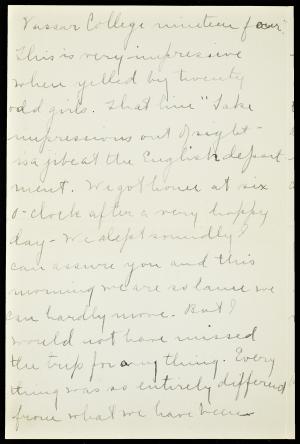 Vassar College nineteen four."
This is very impressive
when yelled by twenty
odd girls. That line "Take
impressions out of sight -
is a jibe at the English depart
ment. We got home at six
o-clock after a very happy
day - We slept soundly I
can assure you and this
morning we are so lame we
can hardly move. But I
would not have missed
the trip for anything. Every
thing was so entirely different
from what we have been